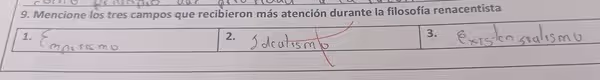 9. Mencione los tres campos que recibieron más atención durante la filosofía renacentista
1. Empirismo 2. Idealismo 3. Existensialismo